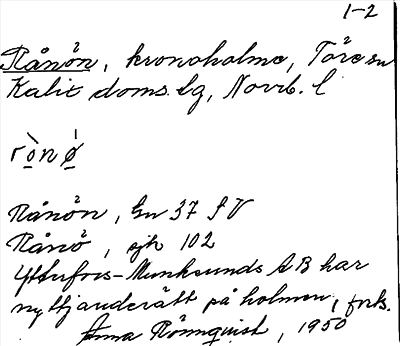 1-2
Rånön, kronoholme, Töre sn
Kalix doms. lg, Norrb. l
rònǿ
Rånön, Gn 37 SV
Rånö, sjk 102
Ytterfors-Munksunds AB har
nyttjanderätt på holmen, fork.
Anna Rönnquist, 1950